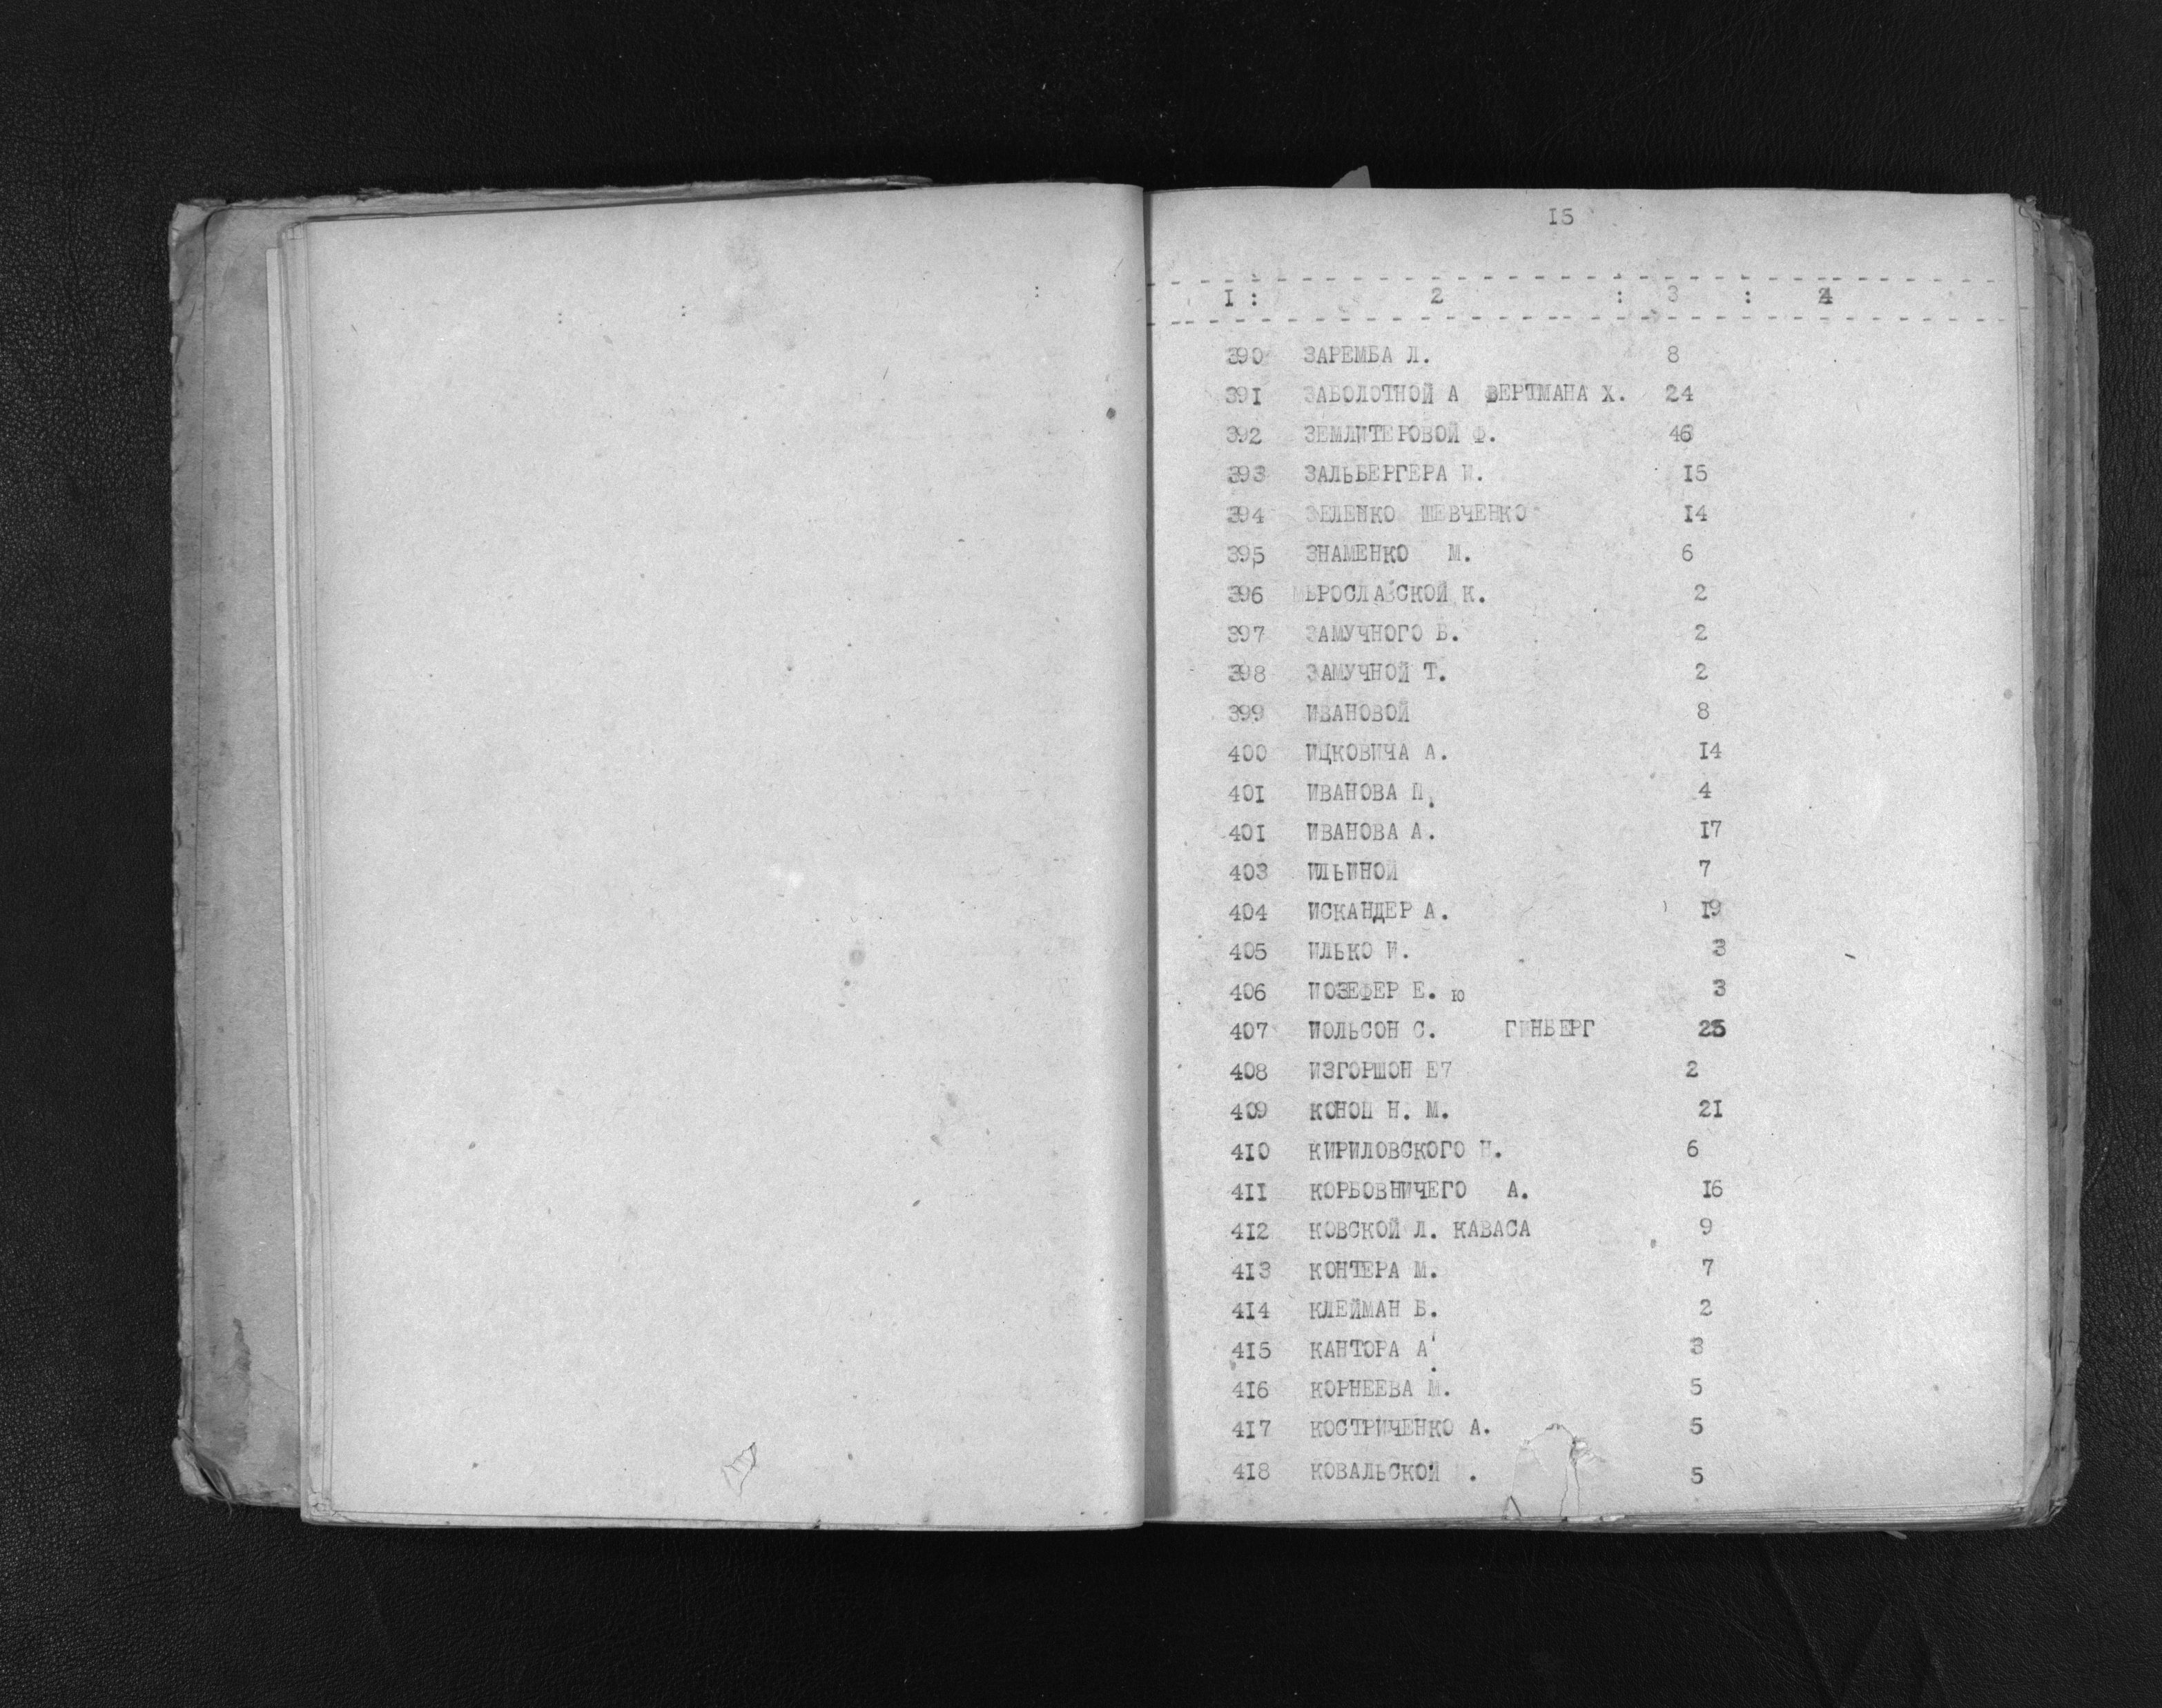 15
I : 2 : 3 : 4
390 ЗАРЕМБА Л. 8
391 ЗАБОЛОТНОЙ А ВЕРТМАНА Х. 24
392 ЗЕМЛИТЕРОВОЙ Ф. 46
393 ЗАЛЬБЕРГЕРА И. I5
394 ЗЕЛЕНКО ШЕВЧЕНКО I4
395 ЗНАМЕНКО М. 6
396 К. 2
397 ЗАМУЧНОГО Б. 2
398 ЗАМУЧНОЙ Т. 2
399 ИВАНОВОЙ 8
400 ИЦКОВИЧА А. I4
40I ИВАНОВА П. 4
40I ИВАНОВА А. I7
403 ИЛЬИНОЙ 7
404 ИСКАНДЕР А. I9
405 ИЛЬКО И. 3
406 ИОЗЕФЕР Е. ю 3
407 ИОЛЬСОН С. ГИНБЕРГ
408 ИЗГОРШОН Е7 2
409 КОНОП Н. М. 2I
4I0 КИРИЛОВСКОГО Н. 6
4II КОРБОВНИЧЕГО А. I6
4I2 КОВСКОЙ Л. КАВАСА 9
4I3 КОНТЕРА М. 7
4I4 КЛЕЙМАН Б. 2
4I5 КАНТОРА А 3
4I6 КОРНЕЕВА М. 5
4I7 КОСТРИЧЕНКО А. 5
4I8 КОВАЛЬСКОЙ . 5